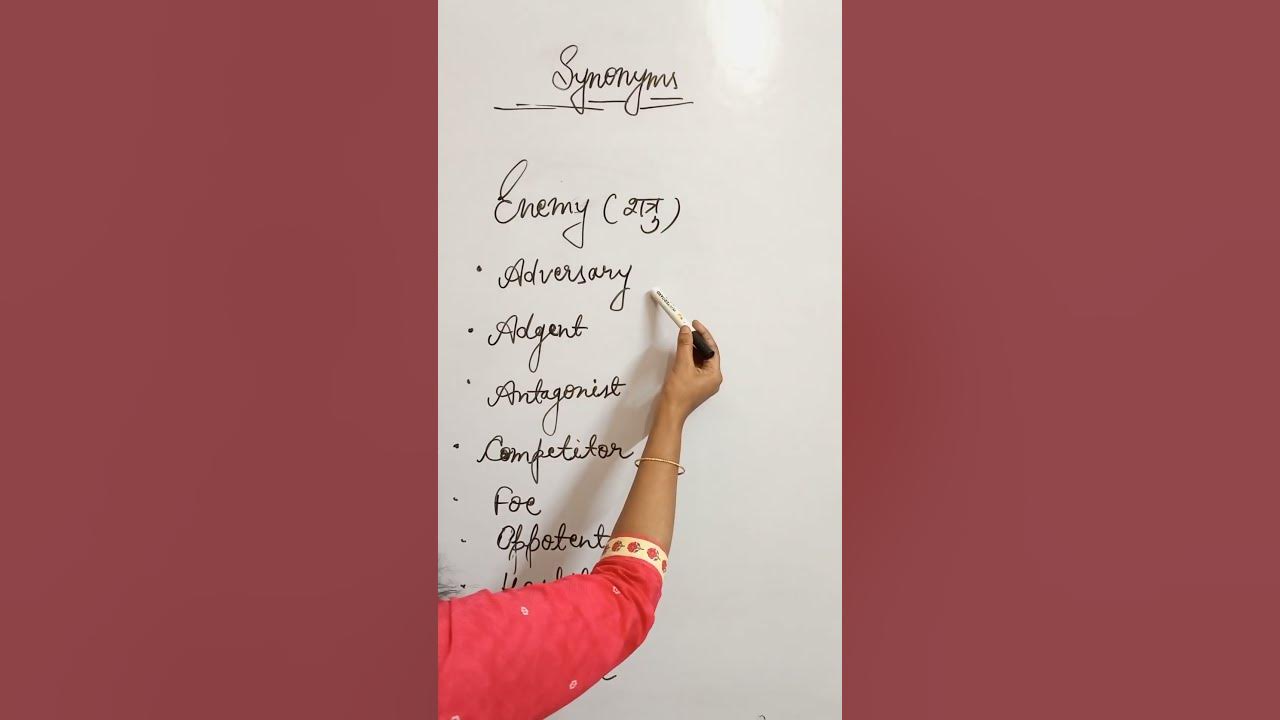 Synonyms
Enemy (शत्रु)
• Adversary
• Adgent
• Antagonist
• Competitor
• Foe
• Oppotent